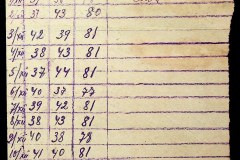 2/XII 37 43 80
3/XII 42 39 81
4/XII 38 43 81
5/XII 37 44 81
6/XII 40 37 77
7/XII 39 42 81
8/XII 38 43 81
9/XII 40 38 78
10/XII 41 40 81